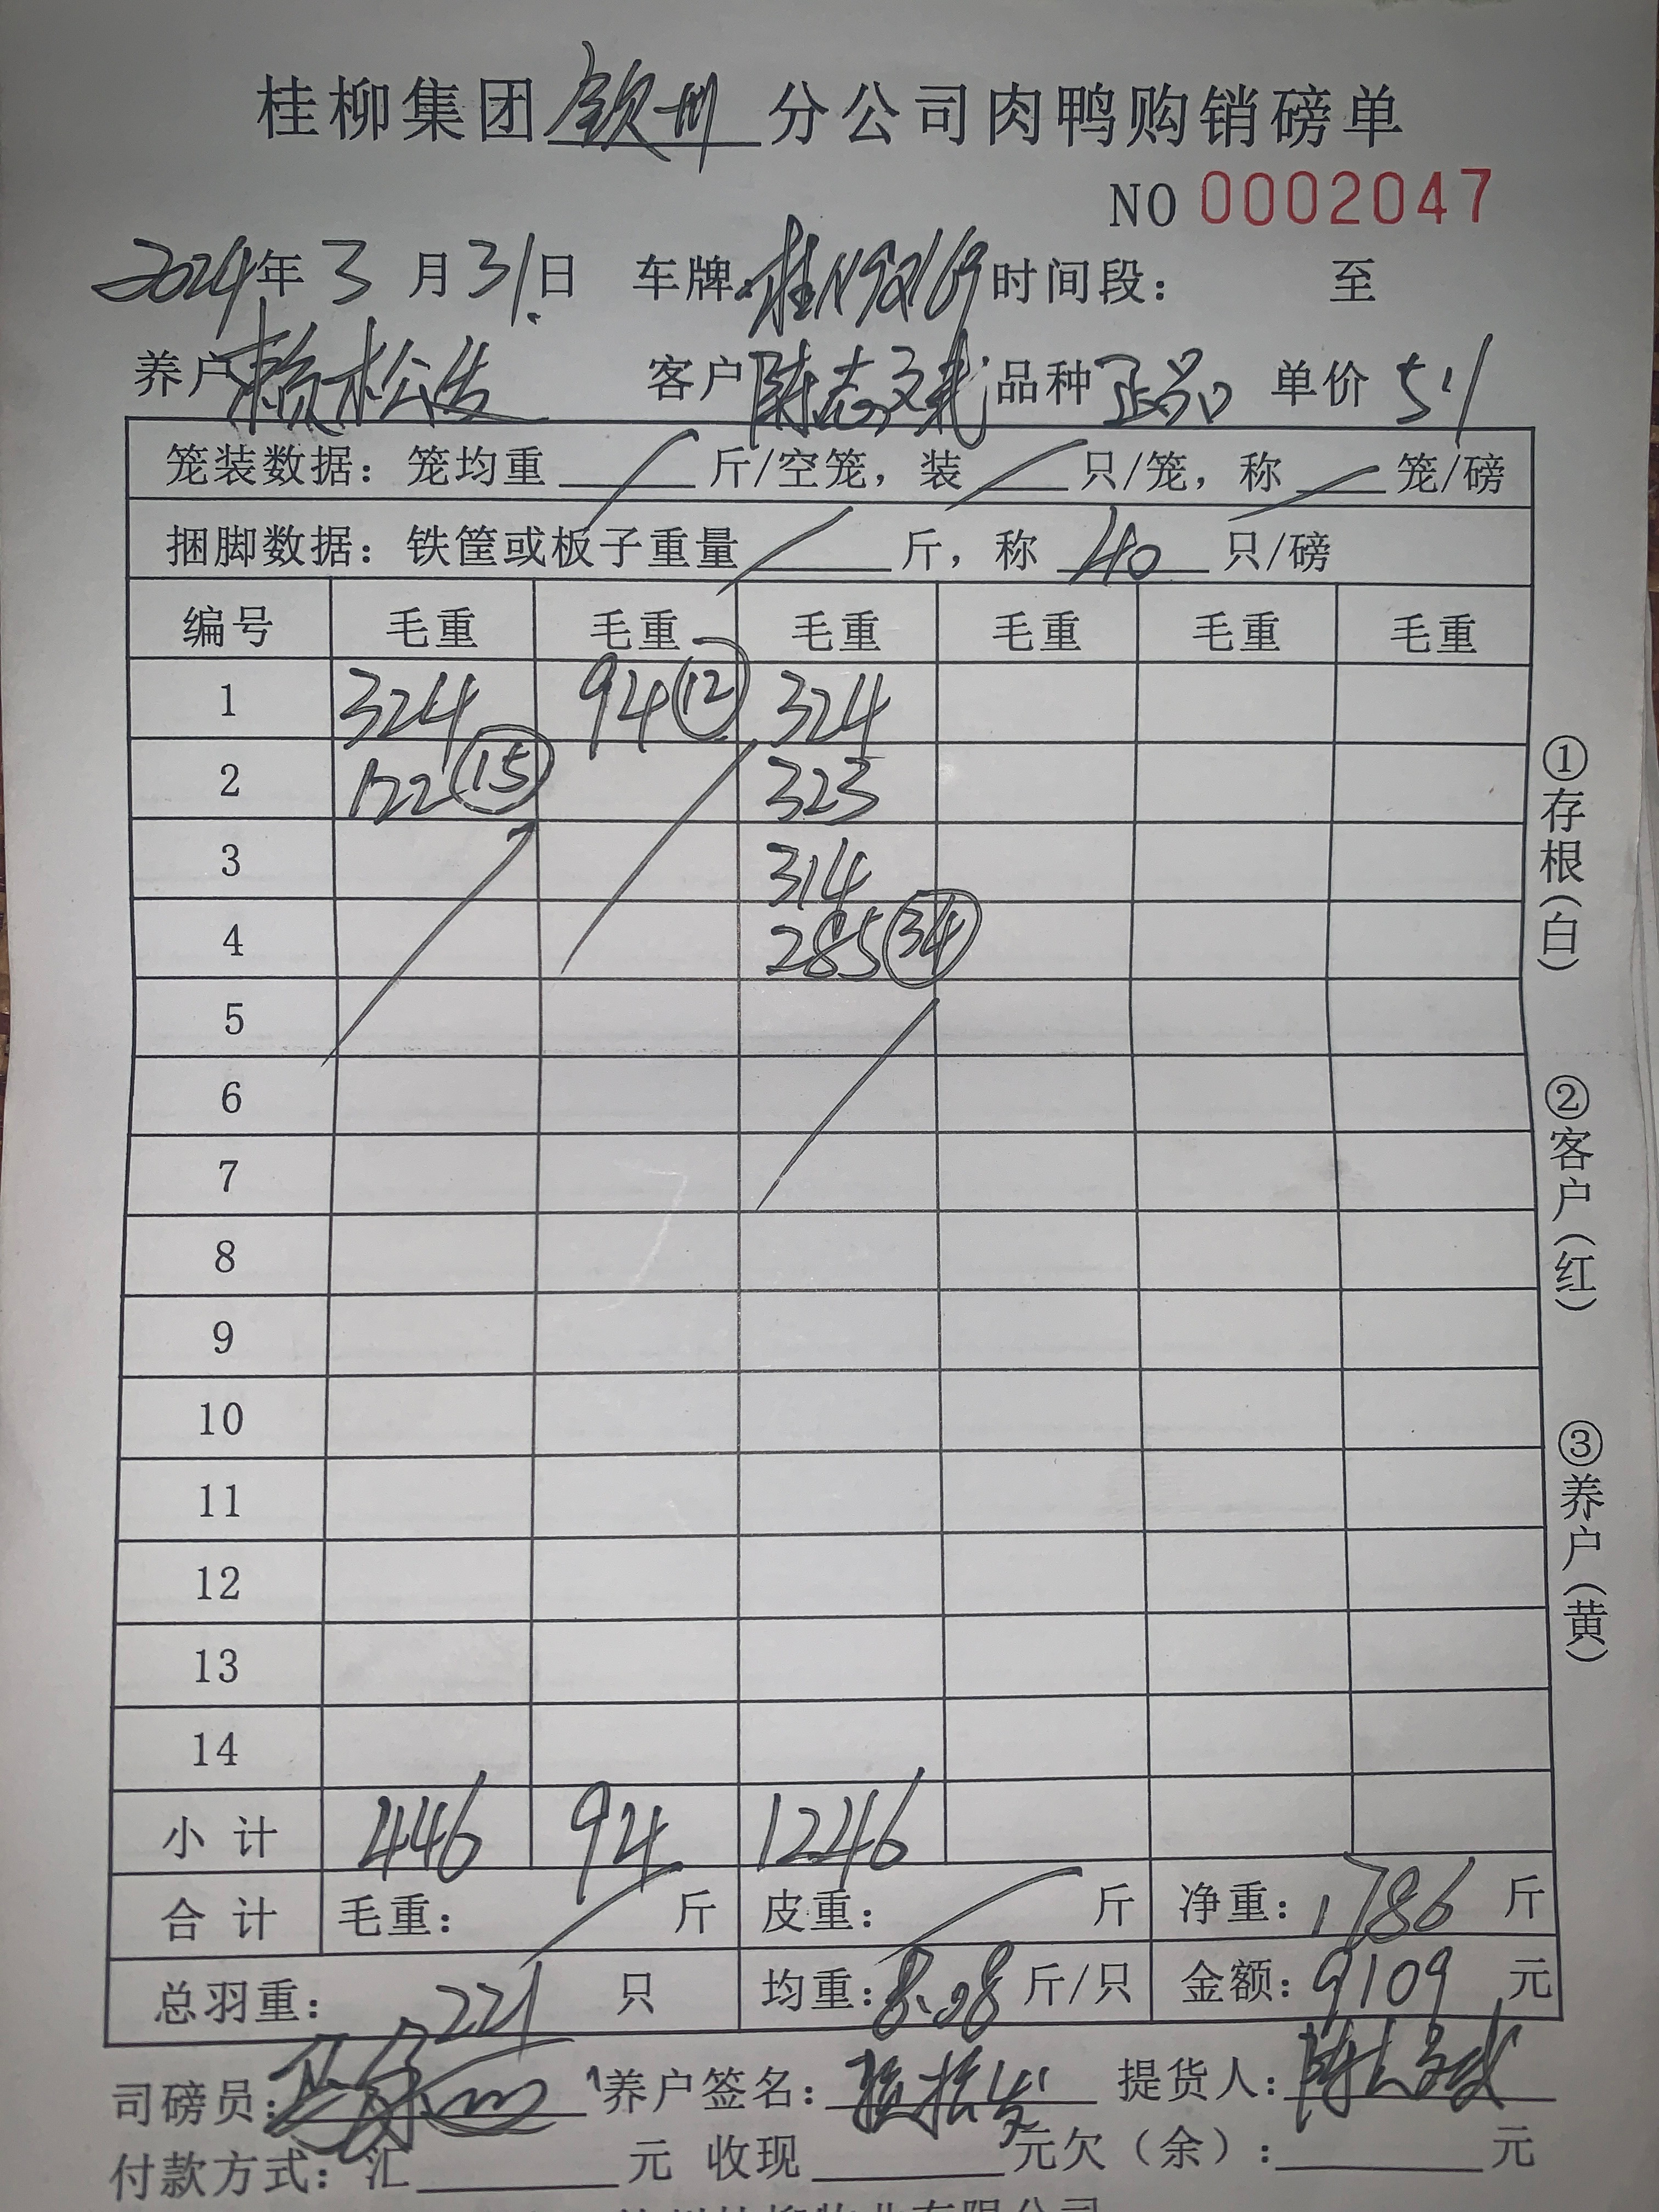 桂柳集团钦州分公司肉鸭购销磅单
NO 0002047
2024年3月31日 车牌:桂N92169 时间段: 至
养户 赖松发 客户 陈志斌 品种 正品 单价 5.1
笼装数据: 笼均重 斤/空笼, 装 只/笼, 称 笼/磅
捆脚数据: 铁筐或板子重量 斤, 称 40 只/磅
编号 毛重 毛重 毛重 毛重 毛重 毛重
1 324 94 ⑫ 324
2 122 ⑮ 323
3 314
4 285 ㉞
5
6
7
8
9
10
11
12
13
14
小计 446 94 1246
合计 毛重: 斤 皮重: 斤 净重: 1786 斤
总羽重: 221 只 均重: 8.08 斤/只 金额: 9109 元
司磅员: 养户签名: 提货人:
付款方式: 汇 元 收现 元欠(余): 元
①存根(白)
②客户(红)
③养户(黄)